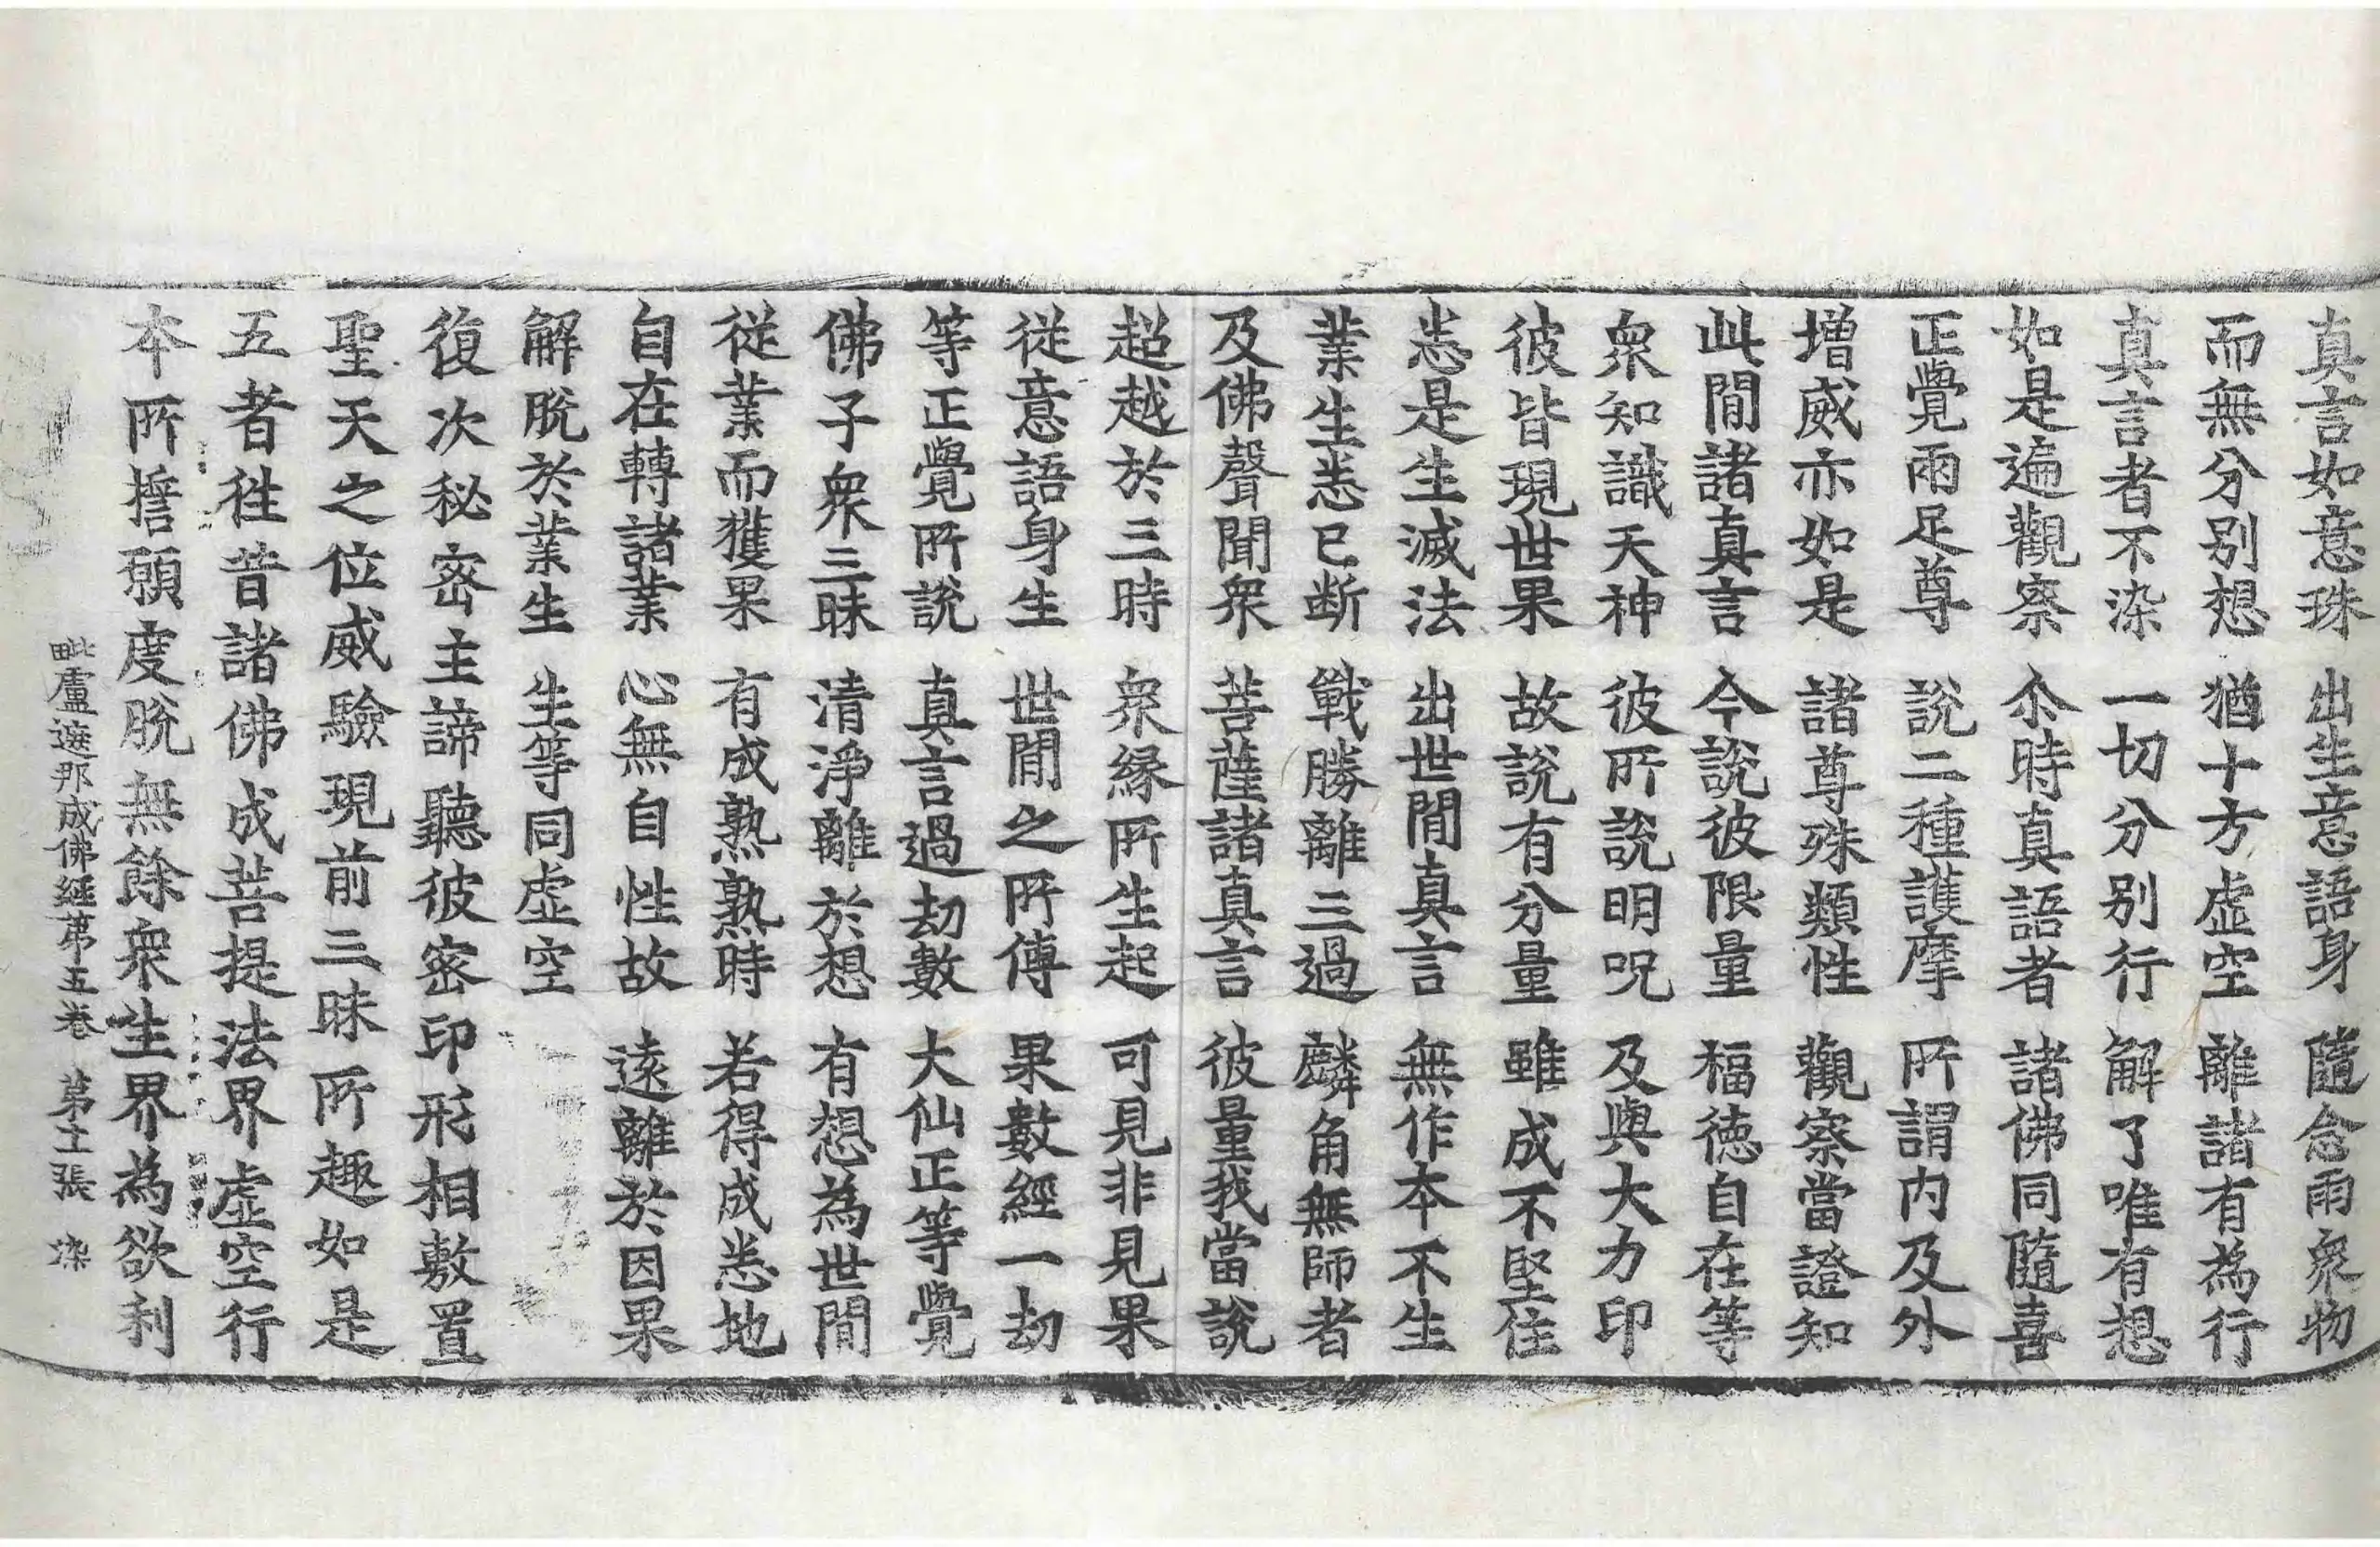 真言如意珠 出生意語身 隨念雨衆物
而無分別想 猶十方虛空 離諸有為行
真言者不染 一切分別行 解了唯有想
如是遍觀察 尒時真語者 諸佛同隨喜
正覺兩足尊 說二種護摩 所謂內及外
增威亦如是 諸尊殊類性 觀察當證知
此閒諸真言 今說彼限量 福德自在等
衆知識天神 彼所說明呪 及與大力印
彼皆現世果 故說有分量 雖成不堅住
悉是生滅法 出世閒真言 無作本不生
業生悉已斷 戰勝離三過 麟角無師者
及佛聲聞衆 菩薩諸真言 彼量我當說
超越於三時 衆緣所生起 可見非見果
從意語身生 世閒之所傳 果數經一劫
等正覺所說 真言過劫數 大仙正等覺
佛子衆三昧 清淨離於想 有想為世閒
從業而獲果 有成熟熟時 若得成悉地
自在轉諸業 心無自性故 遠離於因果
解脫於業生 生等同虛空
復次秘密主諦聽彼密印形相敷置
聖天之位威驗現前三昧所趣如是
五者徃昔諸佛成菩提法界虛空行
本所誓願度脫無餘衆生界為欲利
毗盧遮那成佛經第五卷 第十一張 染